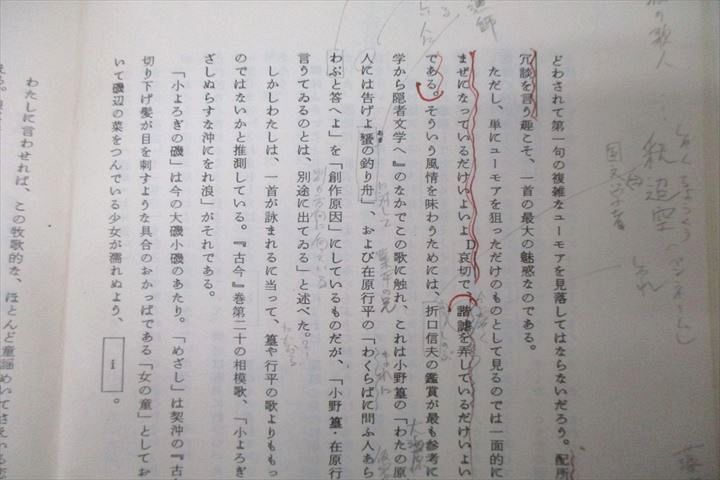 どわされて第一句の複雑なユーモアを見落してはならないだろう。配所
冗談を言う趣こそ、一首の最大の魅惑なのである。
ただし、単にユーモアを狙っただけのものとして見るのでは一面的に
まぜになっているだけいよいよ D 哀切で、諧謔を弄しているだけいよい
である。そういう風情を味わうためには、折口信夫の鑑賞が最も参考に
学から隠者文学へ』のなかでこの歌に触れ、これは小野篁の「わたの原
人には告げよ蜑の釣り舟」、および在原行平の「わくらばに問ふ人あら
あま
わぶと答へよ」を「創作原因」にしているものだが、「小野篁・在原行
言うてゐるのとは、別途に出てゐる」と述べた。
しかしわたしは、一首が詠まれるに当って、篁や行平の歌よりももっ
のではないかと推測している。『古今』巻第二十の相模歌、「小よろぎ
ざしぬらすな沖にをれ浪」がそれである。
「小よろぎの磯」は今の大磯小磯のあたり。「めざし」は契沖の『古
切り下げ髪が目を刺すような具合のおかっぱである「女の童」としてお
いて磯辺の菜をつんでいる少女が濡れぬよう、 i 。
わたしに言わせれば、この牧歌的な、ほとんど童謡めいてさえいる恋
釈迢空
国文学者
漁師
の歌人